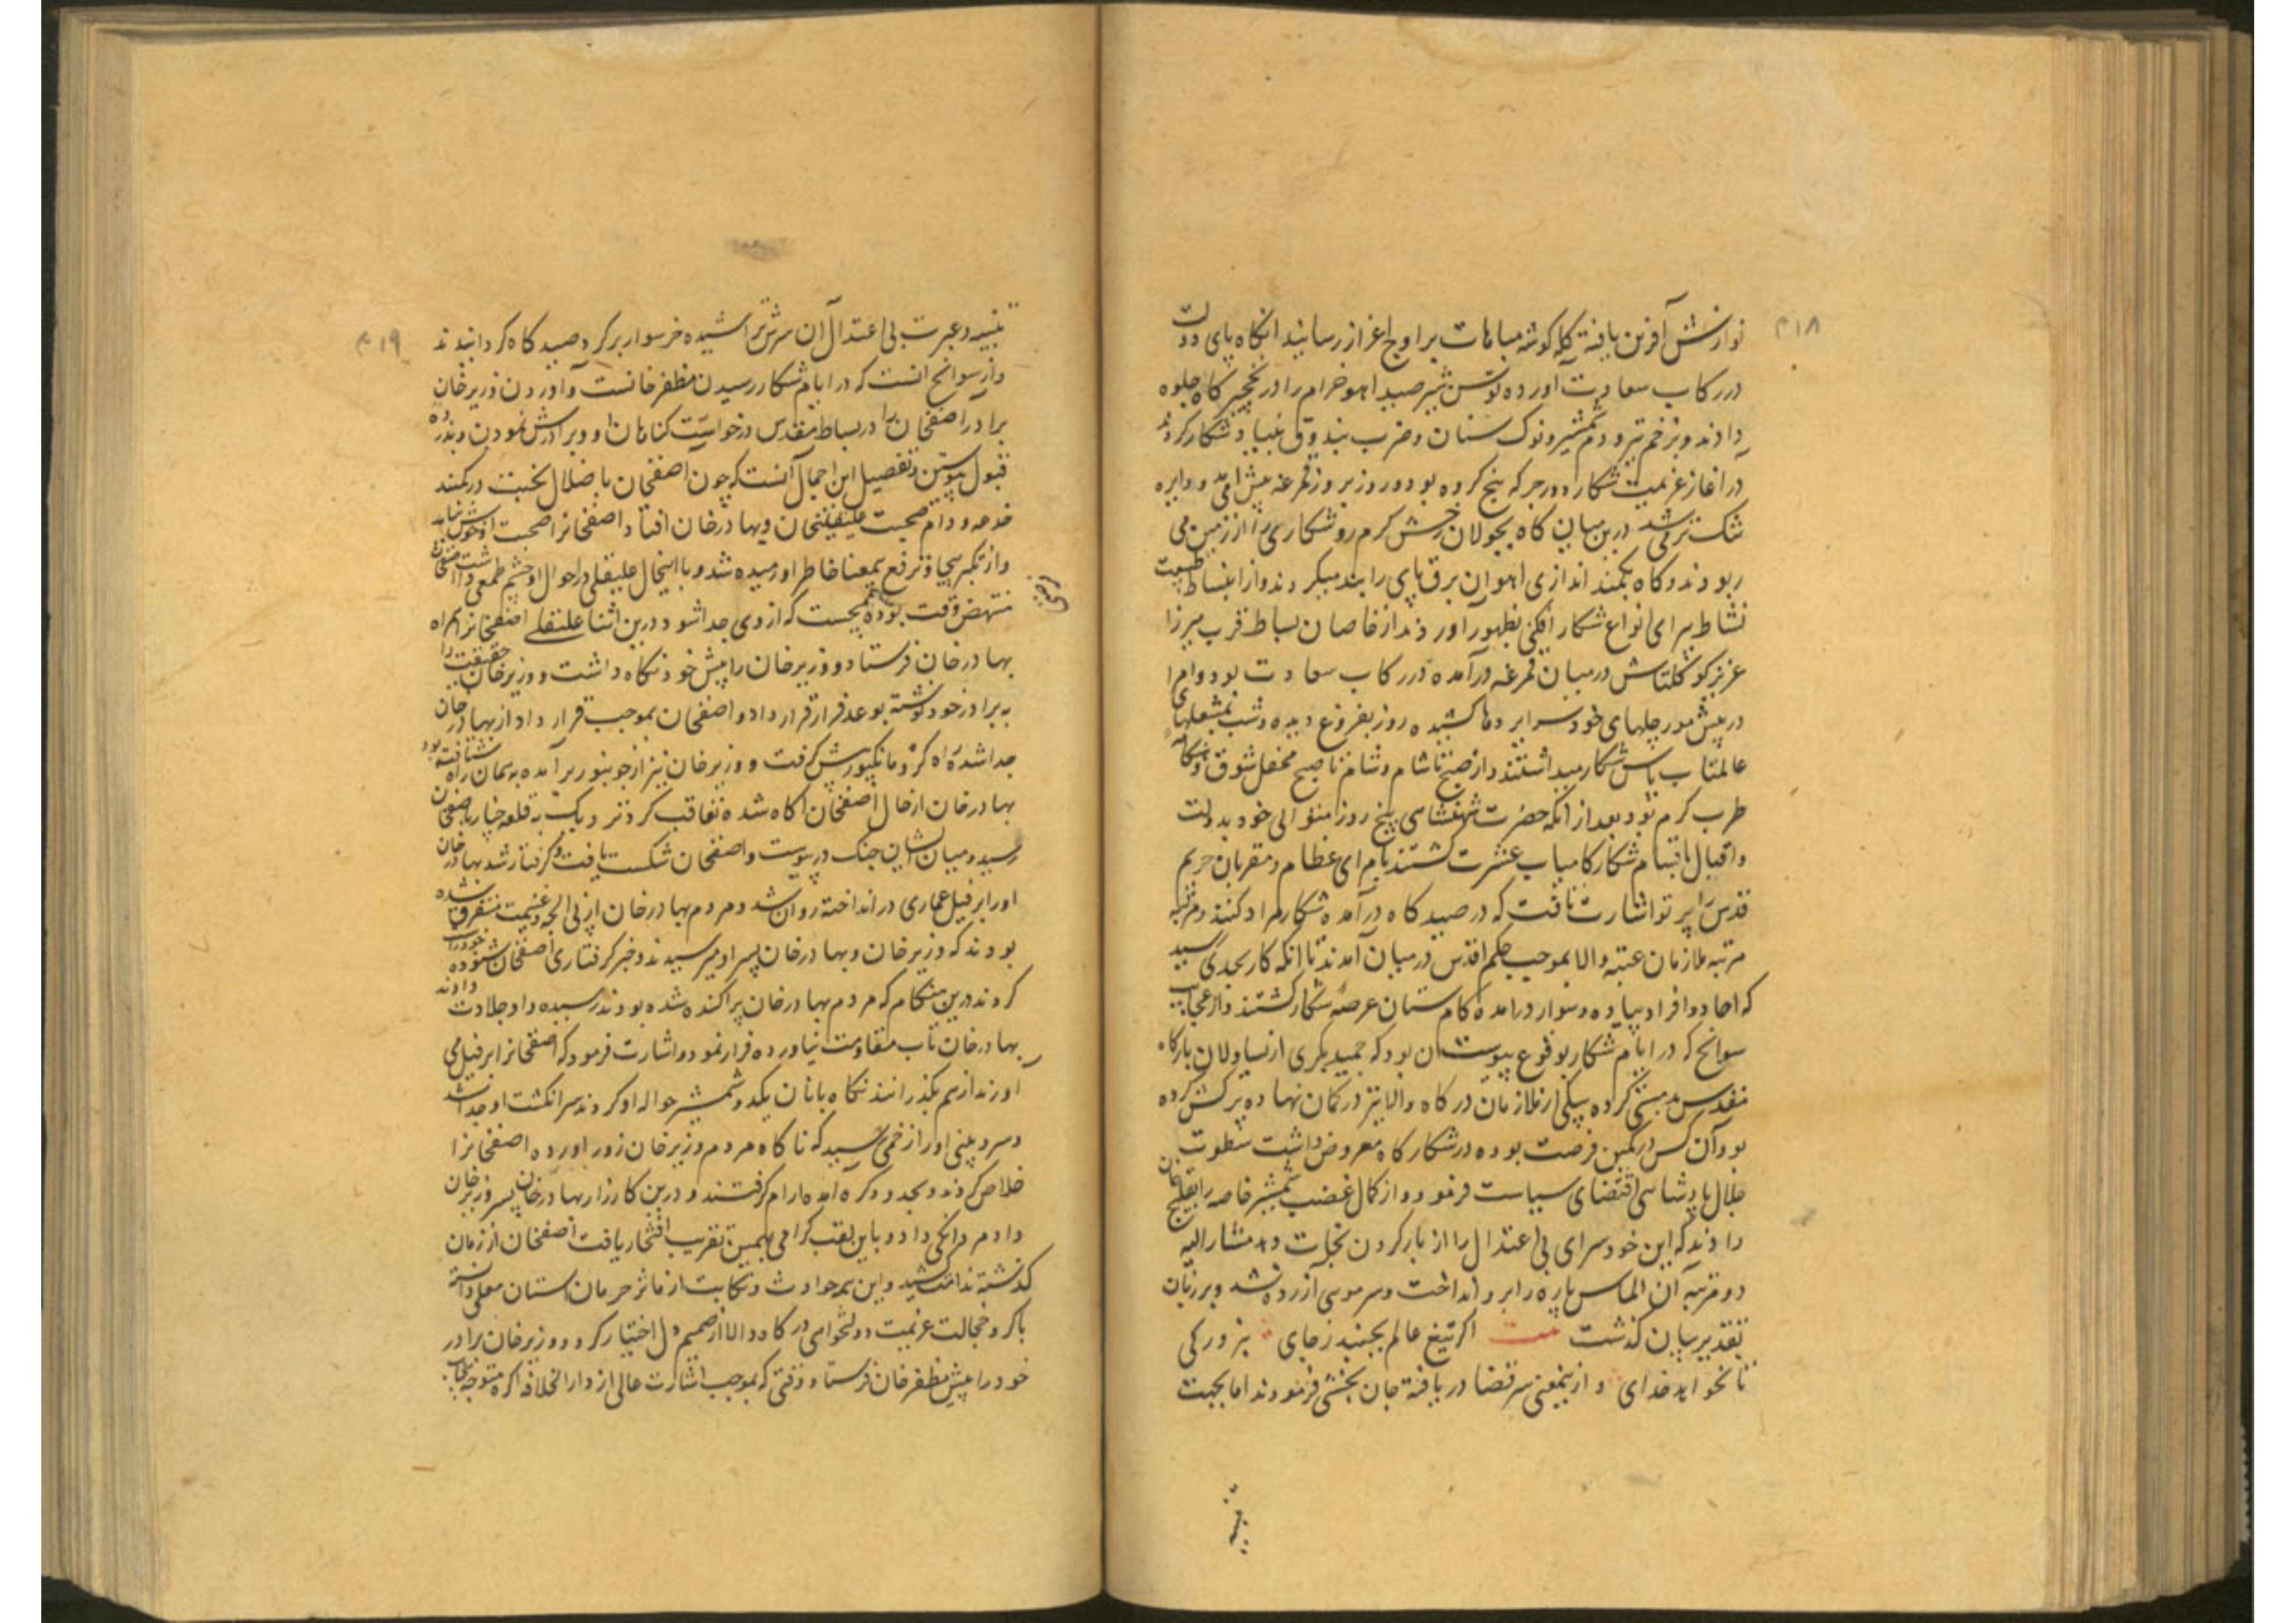 ۴۱۸
نوازش آفرین یافته کله کوشه مباهات بر اوج اعزاز رسانید انکاه پای دولت
در رکاب سعادت اورده توسن شیر صید اهو خرام را در نخچیر کاه جلوه
دادند و بزخم تیر و دم شمشیر و نوک سنان و ضرب بندوق شکار کردند
در اغاز عزیمت شکار دور جرکه پنج کروه بود و روز بروز قمرغه پیش امد و دایره
تنک تر می شد درین میان کاه بجولان رخش کرم رو شکاری را از زمین می
ربودند و کاه بکمند اندازی اهوان برق پای را بند میکردند و از انبساط طبیعت
نشاط پیرای انواع شکار افکنی بظهور اوردند از خاصان بساط قرب میرزا
عزیز کوکلتاش درمیان قمرغه درآمده در رکاب سعادت بود و امرا
در پیش مورچلهای خود سراپردها کشیده روز بفروغ دیده و شب بمشعلهای
عالمتاب پاس شکار میداشتند و از صبح تا شام و شام تا صبح محفل شوق و هنکامه
طرب کرم بود بعد از انکه حضرت شهنشاهی پنج روز متوالی خود بدولت
و اقبال باقسام شکار کامیاب عشرت کشتند بامرای عظام و مقربان حریم
قدس پرتو اشارت تافت که در صید کاه درآمده شکار مراد کنند و مرتبه
مرتبه ملازمان عتبه والا بموجب حکم اقدس درمیان آمدند تا انکه کار بجدی رسید
که احاد و افراد پیاده و سوار درامده کام ستان عرصه شکار کشتند و از عجایب
سوانح که در ایام شکار بوقوع پیوست ان بود که حمید بکری از یساولان بارکاه
مقدس بدمستی کرده بیکی از ملازمان درکاه والا تیر در کمان نهاده پرکش کرده
بود آن کس در کمین فرصت بوده در شکار کاه معروض داشت سطوت
جلال پادشاهی اقتضای سیاست فرمود و از کمال غضب شمشیر خاصه را بقلیج خان
دادند که این خودسرای بی اعتدال را از بار کردن نجات دهد مشارالیه
دو مرتبه آن الماس پاره را برو انداخت و سر مویی آزرده نشد و بر زبان
تقدیر بیان کذشت بیت اکر تیغ عالم بجنبد ز جای نبرد رکی
تا نخواهد خدای و از ینمعنی سر قضا دریافته جان بخشی فرمودند اما بجهت
تنبیه
۴۱۹
تنبیه و عبرت بی اعتدالان سرش تراشیده خر سوار بر کرد صید کاه کردانیدند
و از سوانح انست که در ایام شکار رسیدن مظفر خانست و اوردن وزیر خان
برادر اصفخان را در بساط مقدس درخواست کناهان او و برادرش نمودن و بذروه
قبول پیوستن و تفصیل این اجمال آنست که چون اصفخان باضلال بخت در کمند
خدعه و دام صحبت علیقلیخان و بهادرخان افتاد اصفخانرا صحبت او خوش نیامد
و از تکبر بیجا و ترفع بیمعنا خاطر او رمیده شد و با اینحال علیقلی در احوال او چشم طمعی داشت اصفخان
منتهض وقت بوده میجست که از وی جدا شود درین اثنا علیقلی اصفخانرا همراه
بهادرخان فرستاد و وزیرخان را پیش خود نکاه داشت و وزیرخان حقیقت را
به برادر خود نوشته بوعد فرار قرار داد و اصفخان بموجب قرار داد از بهادرخان
جدا شده راه کره و مانکپور پیش کرفت و وزیرخان نیز از جونپور برآمده بهمان راه شتافته بود
بهادرخان از حال اصفخان اکاه شده تعاقب کرد نزدیک به قلعه چنار باصفخان
رسید و میان ایشان جنک در پیوست و اصفخان شکست یافت و کرفتار شد بهادرخان
او را بر فیل عماری در انداخته روان شد و مردم بهادرخان از پی الجه و غنیمت متفرق شده
بودند که وزیرخان و بهادرخان پسر او میرسیدند و خبر کرفتاری اصفخان شنوده خود را
کردند درین هنکام که مردم بهادرخان پراکنده شده بودند رسیده داد جلادت دادند
بهادرخان تاب مقاومت نیاورده فرار نمود و اشارت فرمود که اصفخانرا بر فیل می
اورند از هم بکذرانند نکاهبانان یکدو شمشیر حواله او کردند سر انکشت او جدا شد
و سر و بینی او را زخمی رسید که ناکاه مردم وزیرخان زور اورده اصفخانرا
خلاص کردند و بحدود کره امده ارام کرفتند و درین کارزار بهادرخان پسر وزیرخان
داد مردانکی داد و باین لقب کرامی بهمین تقریب افتخار یافت اصفخان از زمان
کذشته ندامت کشید و این همه حوادث و نکایت از مآثر حرمان استان معلی دانسته
باکره و خجالت عزیمت دولتخواهی درکاه والا از صمیم دل اختیار کرد و وزیرخان برادر
خود را پیش مظفر خان فرستاد و وقتی که بموجب اشارت عالی از دارالخلافه اکره متوجه